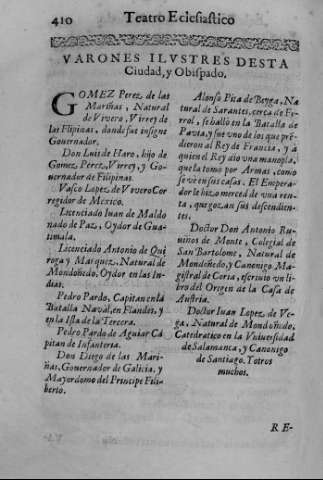 410 Teatro Eclesiastico
VARONES ILVSTRES DESTA
Ciudad, y Obispado.
GOMEZ Perez de las
Mariñas, Natural
de Vivero, Virrey de
las Flipinas, donde fue insigne
Governador.
Don Luis de Haro, hijo de
Gomez Perez, Virrey, y Go-
vernador de Filipinas.
Vasco Lopez de Vivero Cor
regidor de Mexico.
Licenciado Iuan de Maldo
nado de Paz, Oydor de Gua-
timala.
Licenciado Antonio de Qui
roga y Marquez, Natural de
Mondoñedo, Oydor en las In-
dias.
Pedro Pardo, Capitan en la
Batalla Naval, en Flandes, y
en la Isla de la Tercera.
Pedro Pardo de Aguiar Ca
pitan de Infanteria.
Don Diego de las Mari-
ñas, Governador de Galicia, y
Mayordomo del Principe Fili-
berto.
Alonso Pita de Beyga, Na
tural de Sarantes, cerca de Fe-
rrol, se halló en la Batalla de
Pavia, y fue vno de los que pré-
dieron al Rey de Francia, y à
quien el Rey dio vna manopla,
que la tomo por Armas, como
se vè en sus casas. El Empera-
dor le hizo merced de vna ren-
ta, que gozan sus descendien-
tes.
Doctor Don Antonio Ru-
uinos de Monte, Colegial de
San Bartolome, Natural de
Mondoñedo, y Canonigo Ma-
gistral de Coria, escriuio vn li-
bro del Origen de la Casa de
Austria.
Doctor Iuan Lopez de Ve-
ga, Natural de Mondoñedo,
Catedratico en la Vniversidad
de Salamanca, y Canonigo
de Santiago. Y otros
muchos.
RE-